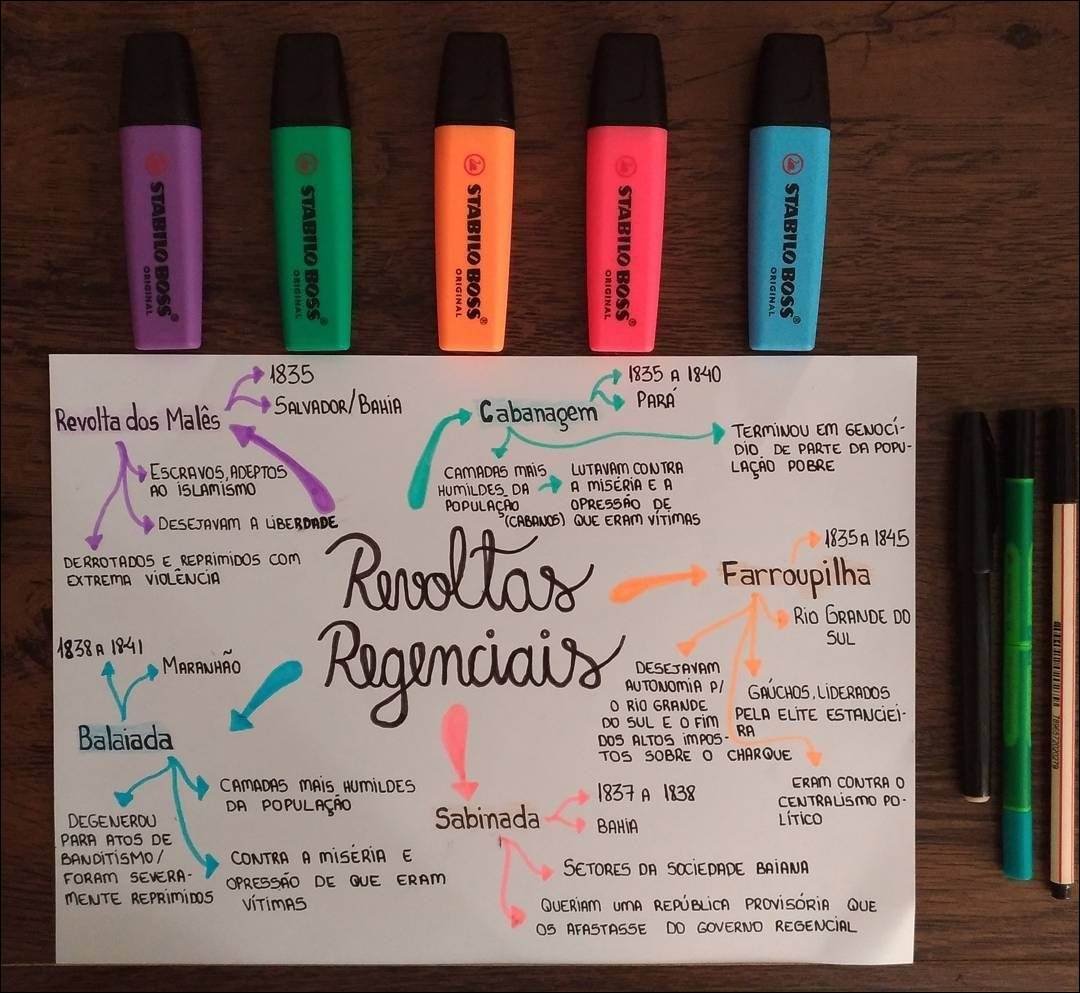 STABILO BOSS®
ORIGINAL
STABILO BOSS®
ORIGINAL
STABILO BOSS®
ORIGINAL
STABILO BOSS®
ORIGINAL
STABILO BOSS®
ORIGINAL
Revolta dos Malês
1835
SALVADOR/BAHIA
ESCRAVOS, ADEPTOS
AO ISLAMISMO
DESEJAVAM A LIBERDADE
DERROTADOS E REPRIMIDOS COM
EXTREMA VIOLÊNCIA
Cabanagem
1835 A 1840
PARÁ
TERMINOU EM GENOCÍ-
DIO DE PARTE DA POPU-
LAÇÃO POBRE
CAMADAS MAIS
HUMILDES DA
POPULAÇÃO
(CABANOS)
LUTAVAM CONTRA
A MISÉRIA E A
OPRESSÃO DE
QUE ERAM VÍTIMAS
Revoltas
Regenciais
Farroupilha
1835 A 1845
RIO GRANDE DO
SUL
DESEJAVAM
AUTONOMIA P/
O RIO GRANDE
DO SUL E O FIM
DOS ALTOS IMPOS-
TOS SOBRE O CHARQUE
GAÚCHOS, LIDERADOS
PELA ELITE ESTANCIEI-
RA
ERAM CONTRA O
CENTRALISMO PO-
LÍTICO
1838 A 1841
MARANHÃO
Balaiada
CAMADAS MAIS HUMILDES
DA POPULAÇÃO
DEGENEROU
PARA ATOS DE
BANDITISMO/
FORAM SEVERA-
MENTE REPRIMIDOS
CONTRA A MISÉRIA E
OPRESSÃO DE QUE ERAM
VÍTIMAS
Sabinada
1837 A 1838
BAHIA
SETORES DA SOCIEDADE BAIANA
QUERIAM UMA REPÚBLICA PROVISÓRIA QUE
OS AFASTASSE DO GOVERNO REGENCIAL